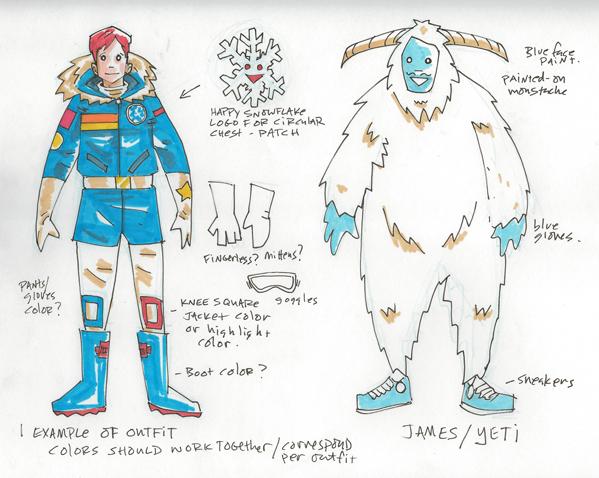 HAPPY SNOWFLAKE
LOGO FOR CIRCULAR
CHEST-PATCH
Blue face
Paint.
PAINTED-ON
moustache
Fingerless? Mittens?
blue
gloves.
goggles
PANTS/
gloves
COLOR?
- KNEE SQUARE
JACKET COLOR
OR highlight
COLOR.
- BOOT COLOR?
- SNEAKERS
1 EXAMPLE OF OUTFIT
COLORS SHOULD WORK TOGETHER/correspond
per outfit
JAMES/YETI